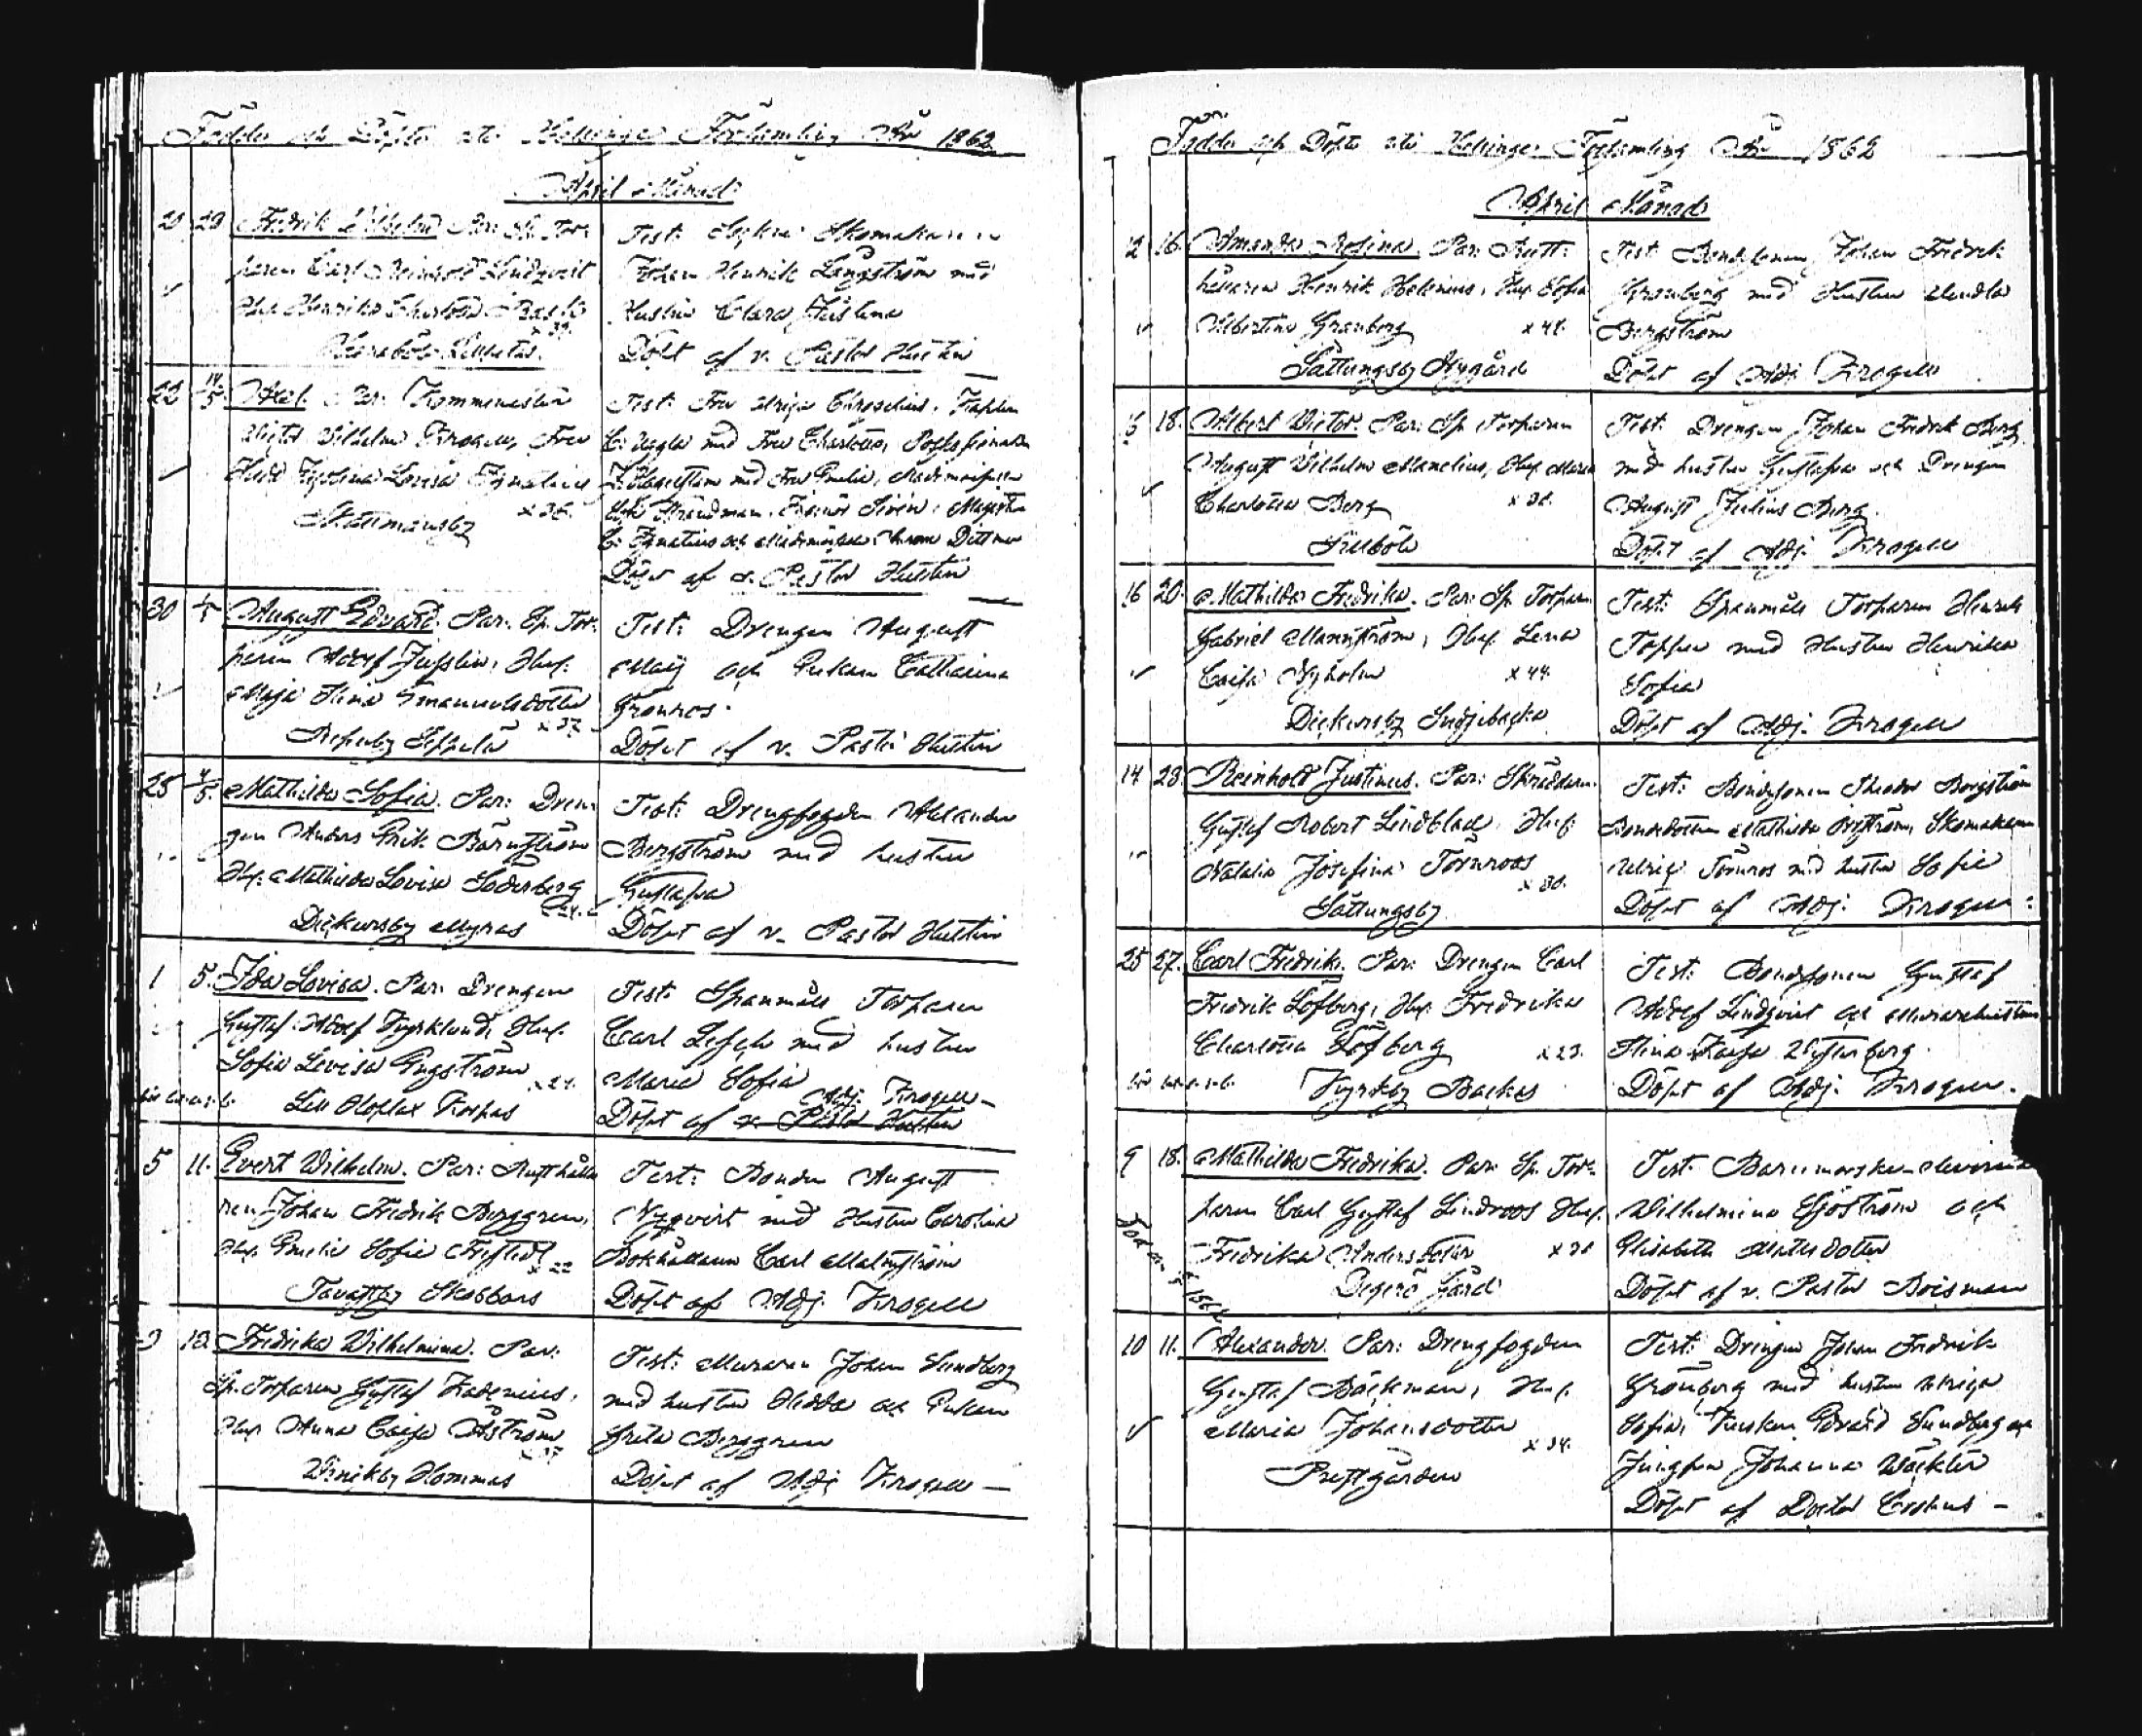 Födde och Döpte uti Helsinge Församling År 1862
April Månad
20 29 Fredrik Wilhelm. Par: Sp. Tor-
paren Carl Reinhold Lindqvist
Hus. Henrika Charlotta
x 39.
Test: Sockne Skomakaren
Johan Henrik Långström med
Hustru Clara Justina
Döpt af v. Pastor Hustin
22 14/5 Axel. Par: Kommenister
Victor Wilhelm Krogell, Fru
Hedd Lovisa Ignatius
x 36.
Skattmansby
Test: Fru Ulrica
C. Uggla med Fru Charlotta,
med Fru Emilia,
Sirén, Magister
C. Ignatius och Dittmer
Döpt af v. Pastor Hustin
30 1/5 August Edvard. Par: Sp. Tor-
paren Adolf Jusslin, Hus.
Maja Stina Emanuelsdotter
x 37.
Seppala
Test: Drengen August
Maij och Enkan Catharina
Grönroos.
Döpt af v. Pastor Hustin
25 4/5. Mathilda Sofia. Par: Dren-
gen Anders Erik Bärnström
Hus. Mathilda Lovisa Söderberg
Dickursby Myras
Test: Drengfogden Alexander
Bergström med hustru
Gustafva
Döpt af v. Pastor Hustin
1 5. Ida Lovisa. Par: Drengen
Gustaf Adolf Fyrklund, Hus.
Sofia Lovisa Engström
x 21.
Lill Hoplax Korpas
Test: Spanmåls Torparen
Carl med hustru
Maria Sofia
Adj. Krogell
Döpt af v. Pastor Hustin
5 11. Evert Wilhelm. Par: Rusthålla-
ren Johan Fredrik Berggren,
Hus. Emilie Sofie
x 22
Tavastby Skobbars
Test: Bonden August
Nyqvist med Hustru Carolina
Bokhållaren Carl Malmström
Döpt af Adj. Krogell
9 13. Fredrika Wilhelmina. Par:
Sp. Torparen Gustaf
Hus. Anna Caisa Åström
x 37
Winikby Hommas
Test: Muraren Johan Sundberg
med hustru Hedda och Enkan
Greta Berggren
Döpt af Adj. Krogell
Födde och Döpte uti Helsinge Församling År 1862
April Månad
12 16. Amanda Rosina. Par: Rust-
hållaren Henrik Helenius, Hus. Sofia
Albertina Granberg x 41.
Sottungsby Nygård
Test: Bondesonen Johan Fredrik
Gronberg med Hustru Hendla
Bergström
Döpt af Adj. Krogell
15 18. Albert Victor. Par: Sp. Torparen
August Wilhelm Manelius, Hus. Maria
Charlotta Berg x 38.
Fillböle
Test: Drengen Johan Fredrik Berg
med hustru Gustafva och Drengen
August Julius Berg.
Döpt af Adj. Krogell
16 20. Mathilda Fredrika. Par: Sp. Torparen
Gabriel Mannström, Hus. Lena
Caisa Nyholm x 44.
Dickursby
Test: Spanmåls Torparen Henrik
Toppen med Hustru Henrika
Sofia
Döpt af Adj. Krogell
14 23. Reinhold Justinus. Par: Skräddaren
Gustaf Robert Lindblad, Hus.
Natalia Josefina Törnroos
x 30.
Sottungsby
Test: Bondesonen Theodor Bergström
Bondedottren Mathilda Bergström, Skomakaren
Ulrik Törnros med hustru Sofie
Döpt af Adj. Krogell
25 27. Carl Fredrik. Par: Drengen Carl
Fredrik Löfberg, Hus. Fredrika
Charlotta Löfberg x 23.
Kyrkby Backas
Test: Bondesonen Gustaf
Adolf Lindqvist och Murarehustrun
Stina Kaisa Westerberg.
Döpt af Adj. Krogell.
9 18. Mathilda Fredrika. Par: Sp. Tor-
paren Carl Gustaf Lindroos Hus.
Fredrika Andersdotter x 38
Degerö Gård
Test: Barnmorskan
Wilhelmina Sjöström och
Elisabeth Matsdotter
Döpt af v. Pastor Boisman
10 11. Alexander. Par: Drengfogden
Gustaf Bäckman, Hus.
Maria Johansdotter
x 34.
Prestgården
Test: Drengen Johan Fredrik
Grönberg med hustru Ulrica
Sofia, Kusken Edvard Sundberg och
Jungfrun Johanna Wäckter
Döpt af Doctor